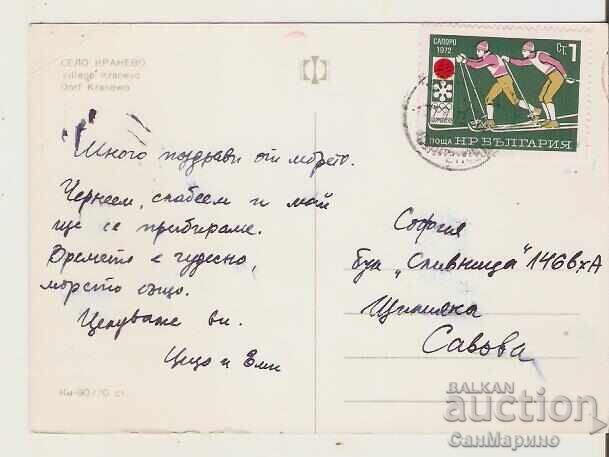 СЕЛО КРАНЕВО
Village Kranevo
Dorf Kranewo
Много поздрави от морето.
Чернеем, слабеем и май
ще се прибираме.
Времето е чудесно,
морето също.
Целуваме ви.
Цецо и Еми
Ки-90/70 ст.
САПОРО
1972
СТ. 1
ПОЩА НР БЪЛГАРИЯ
София
бул „Сливница" 146 вх А
Щилияна
Савова
BALKAN
auction
СанМарино